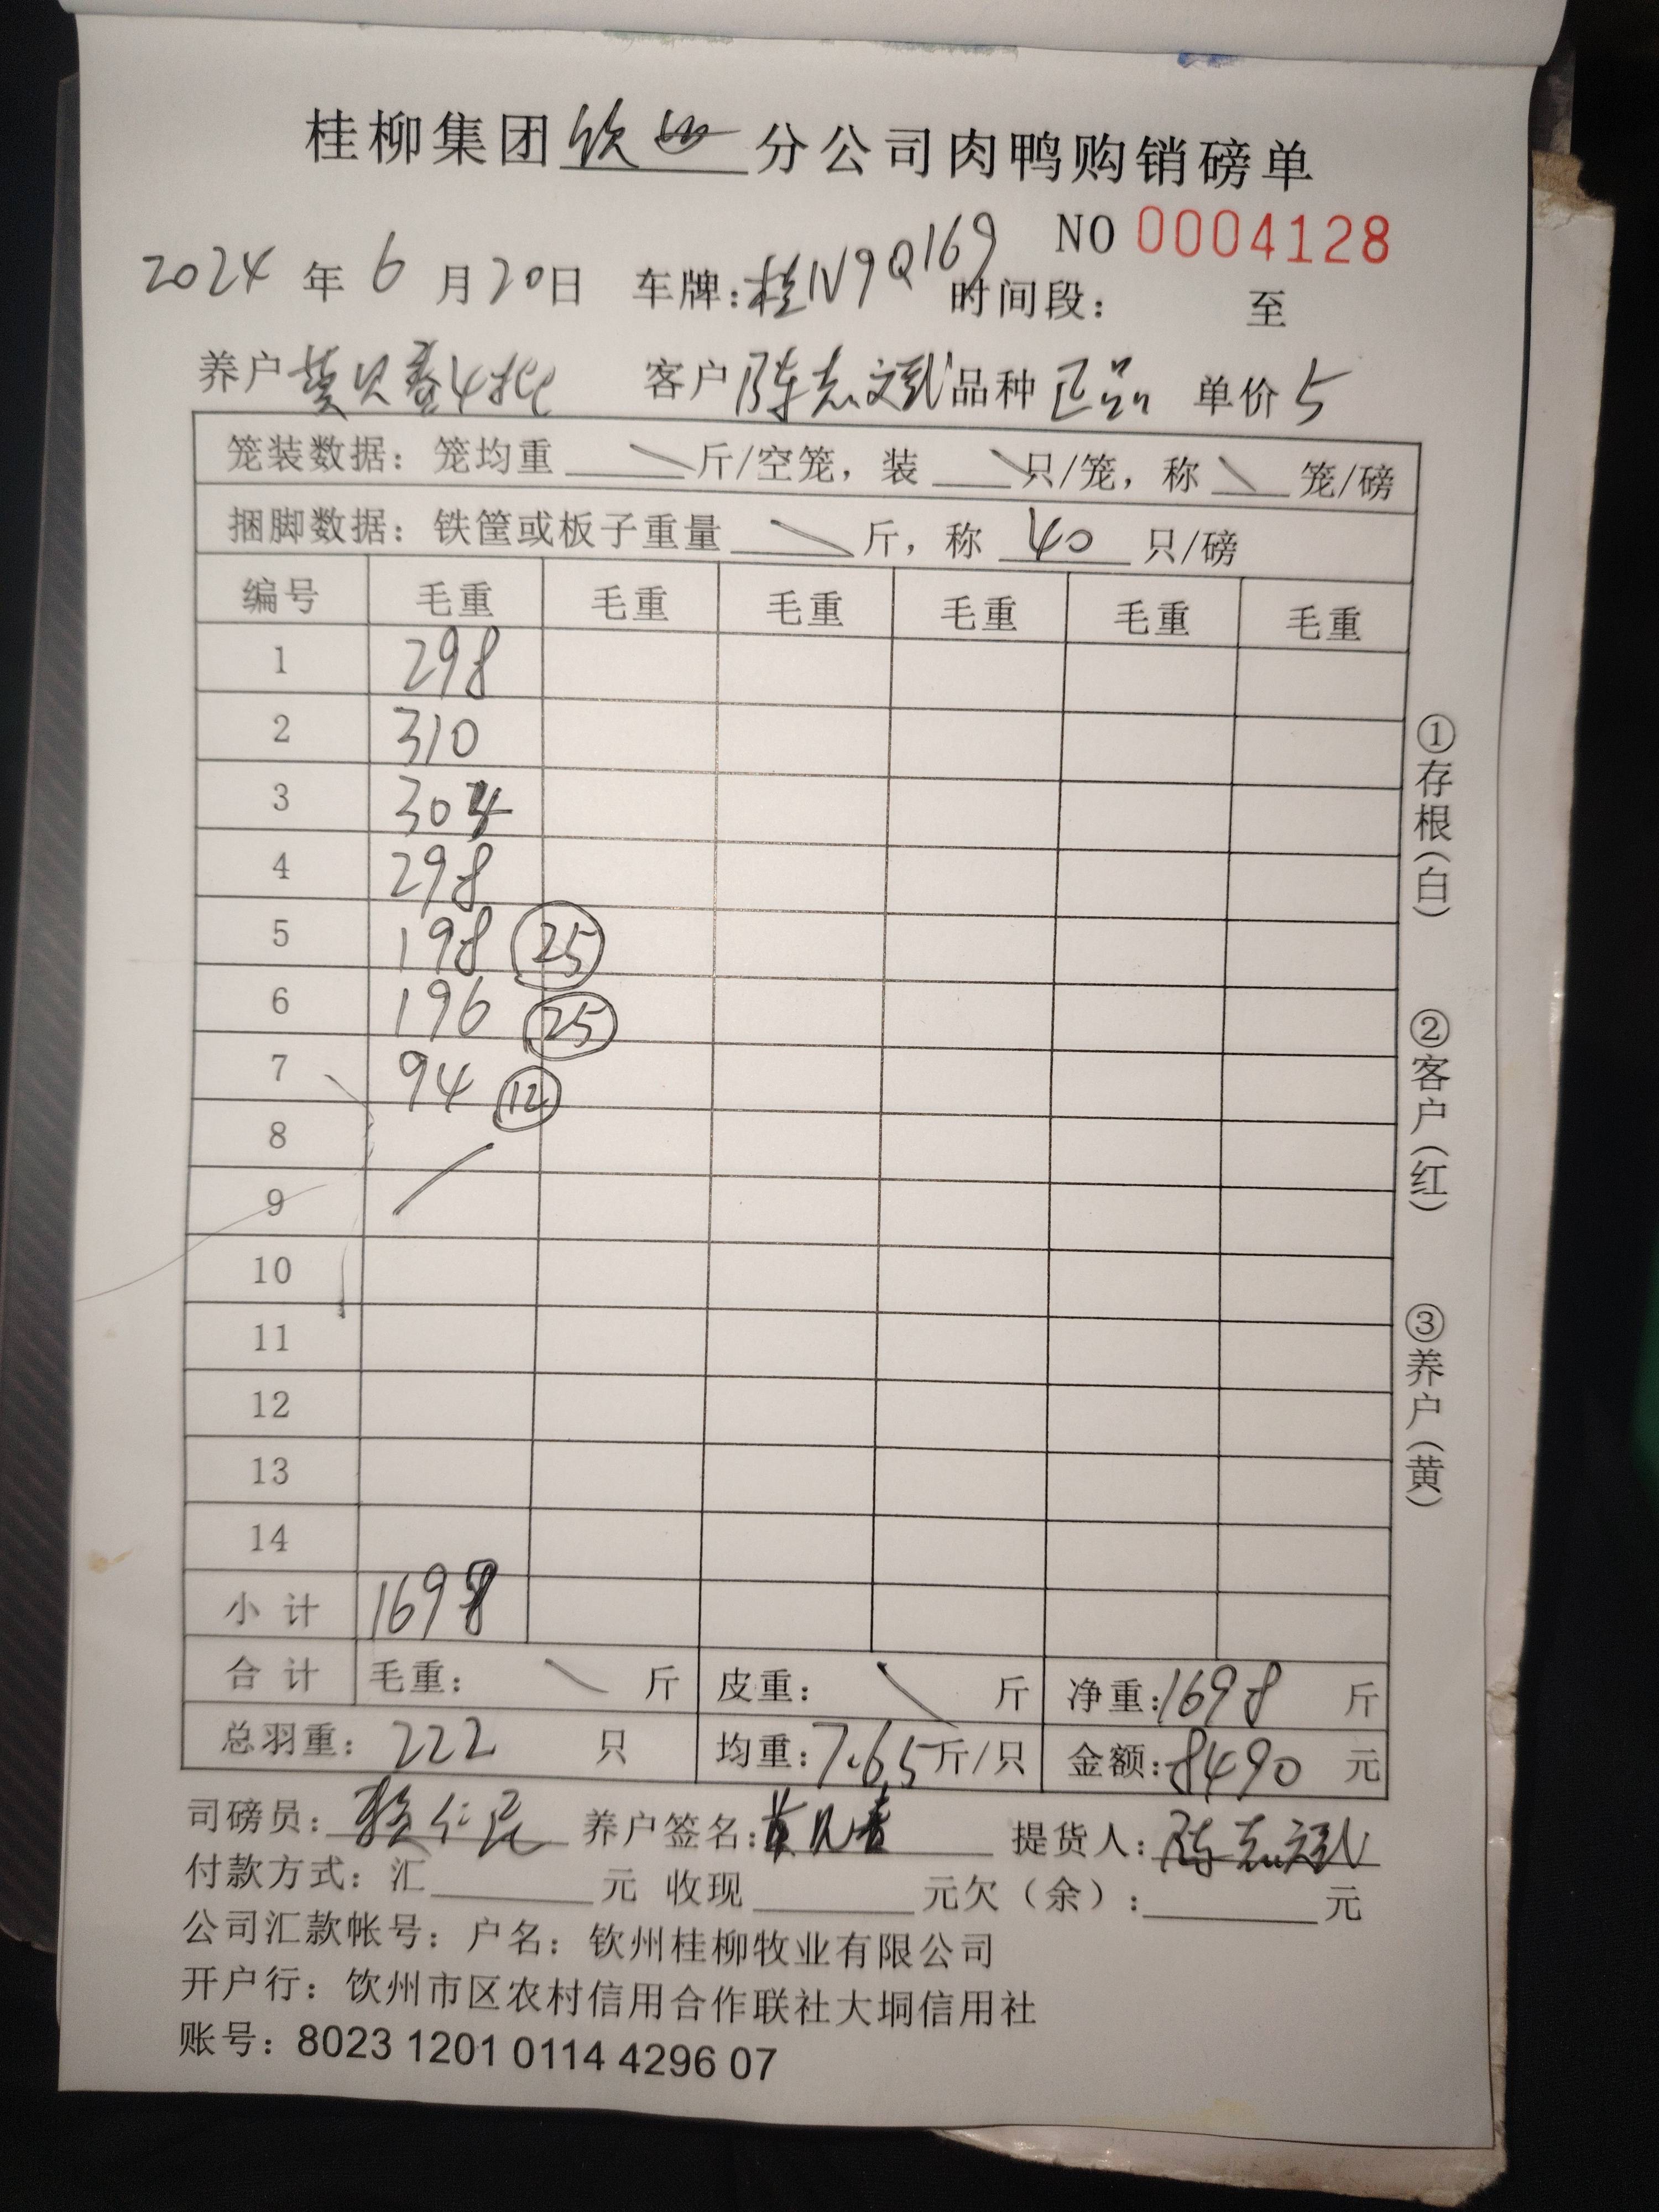 桂柳集团钦州分公司肉鸭购销磅单
NO 0004128
2024年6月20日 车牌:桂N9Q169 时间段: 至
养户 4批 客户 陈志斌 品种 正品 单价 5
笼装数据: 笼均重 斤/空笼, 装 只/笼, 称 笼/磅
捆脚数据: 铁筐或板子重量 斤, 称 40 只/磅
编号 毛重 毛重 毛重 毛重 毛重 毛重
1 298
2 310
3 304
4 298
5 198 25
6 196 25
7 94 12
8
9
10
11
12
13
14
小计 1698
合计 毛重: 斤 皮重: 斤 净重:1698 斤
总羽重: 222 只 均重:7.65斤/只 金额:8490 元
司磅员: 仁民 养户签名: 提货人: 陈志斌
付款方式: 汇 元 收现 元欠(余): 元
公司汇款帐号: 户名: 钦州桂柳牧业有限公司
开户行: 钦州市区农村信用合作联社大垌信用社
账号: 8023 1201 0114 4296 07
①存根(白)
②客户(红)
③养户(黄)